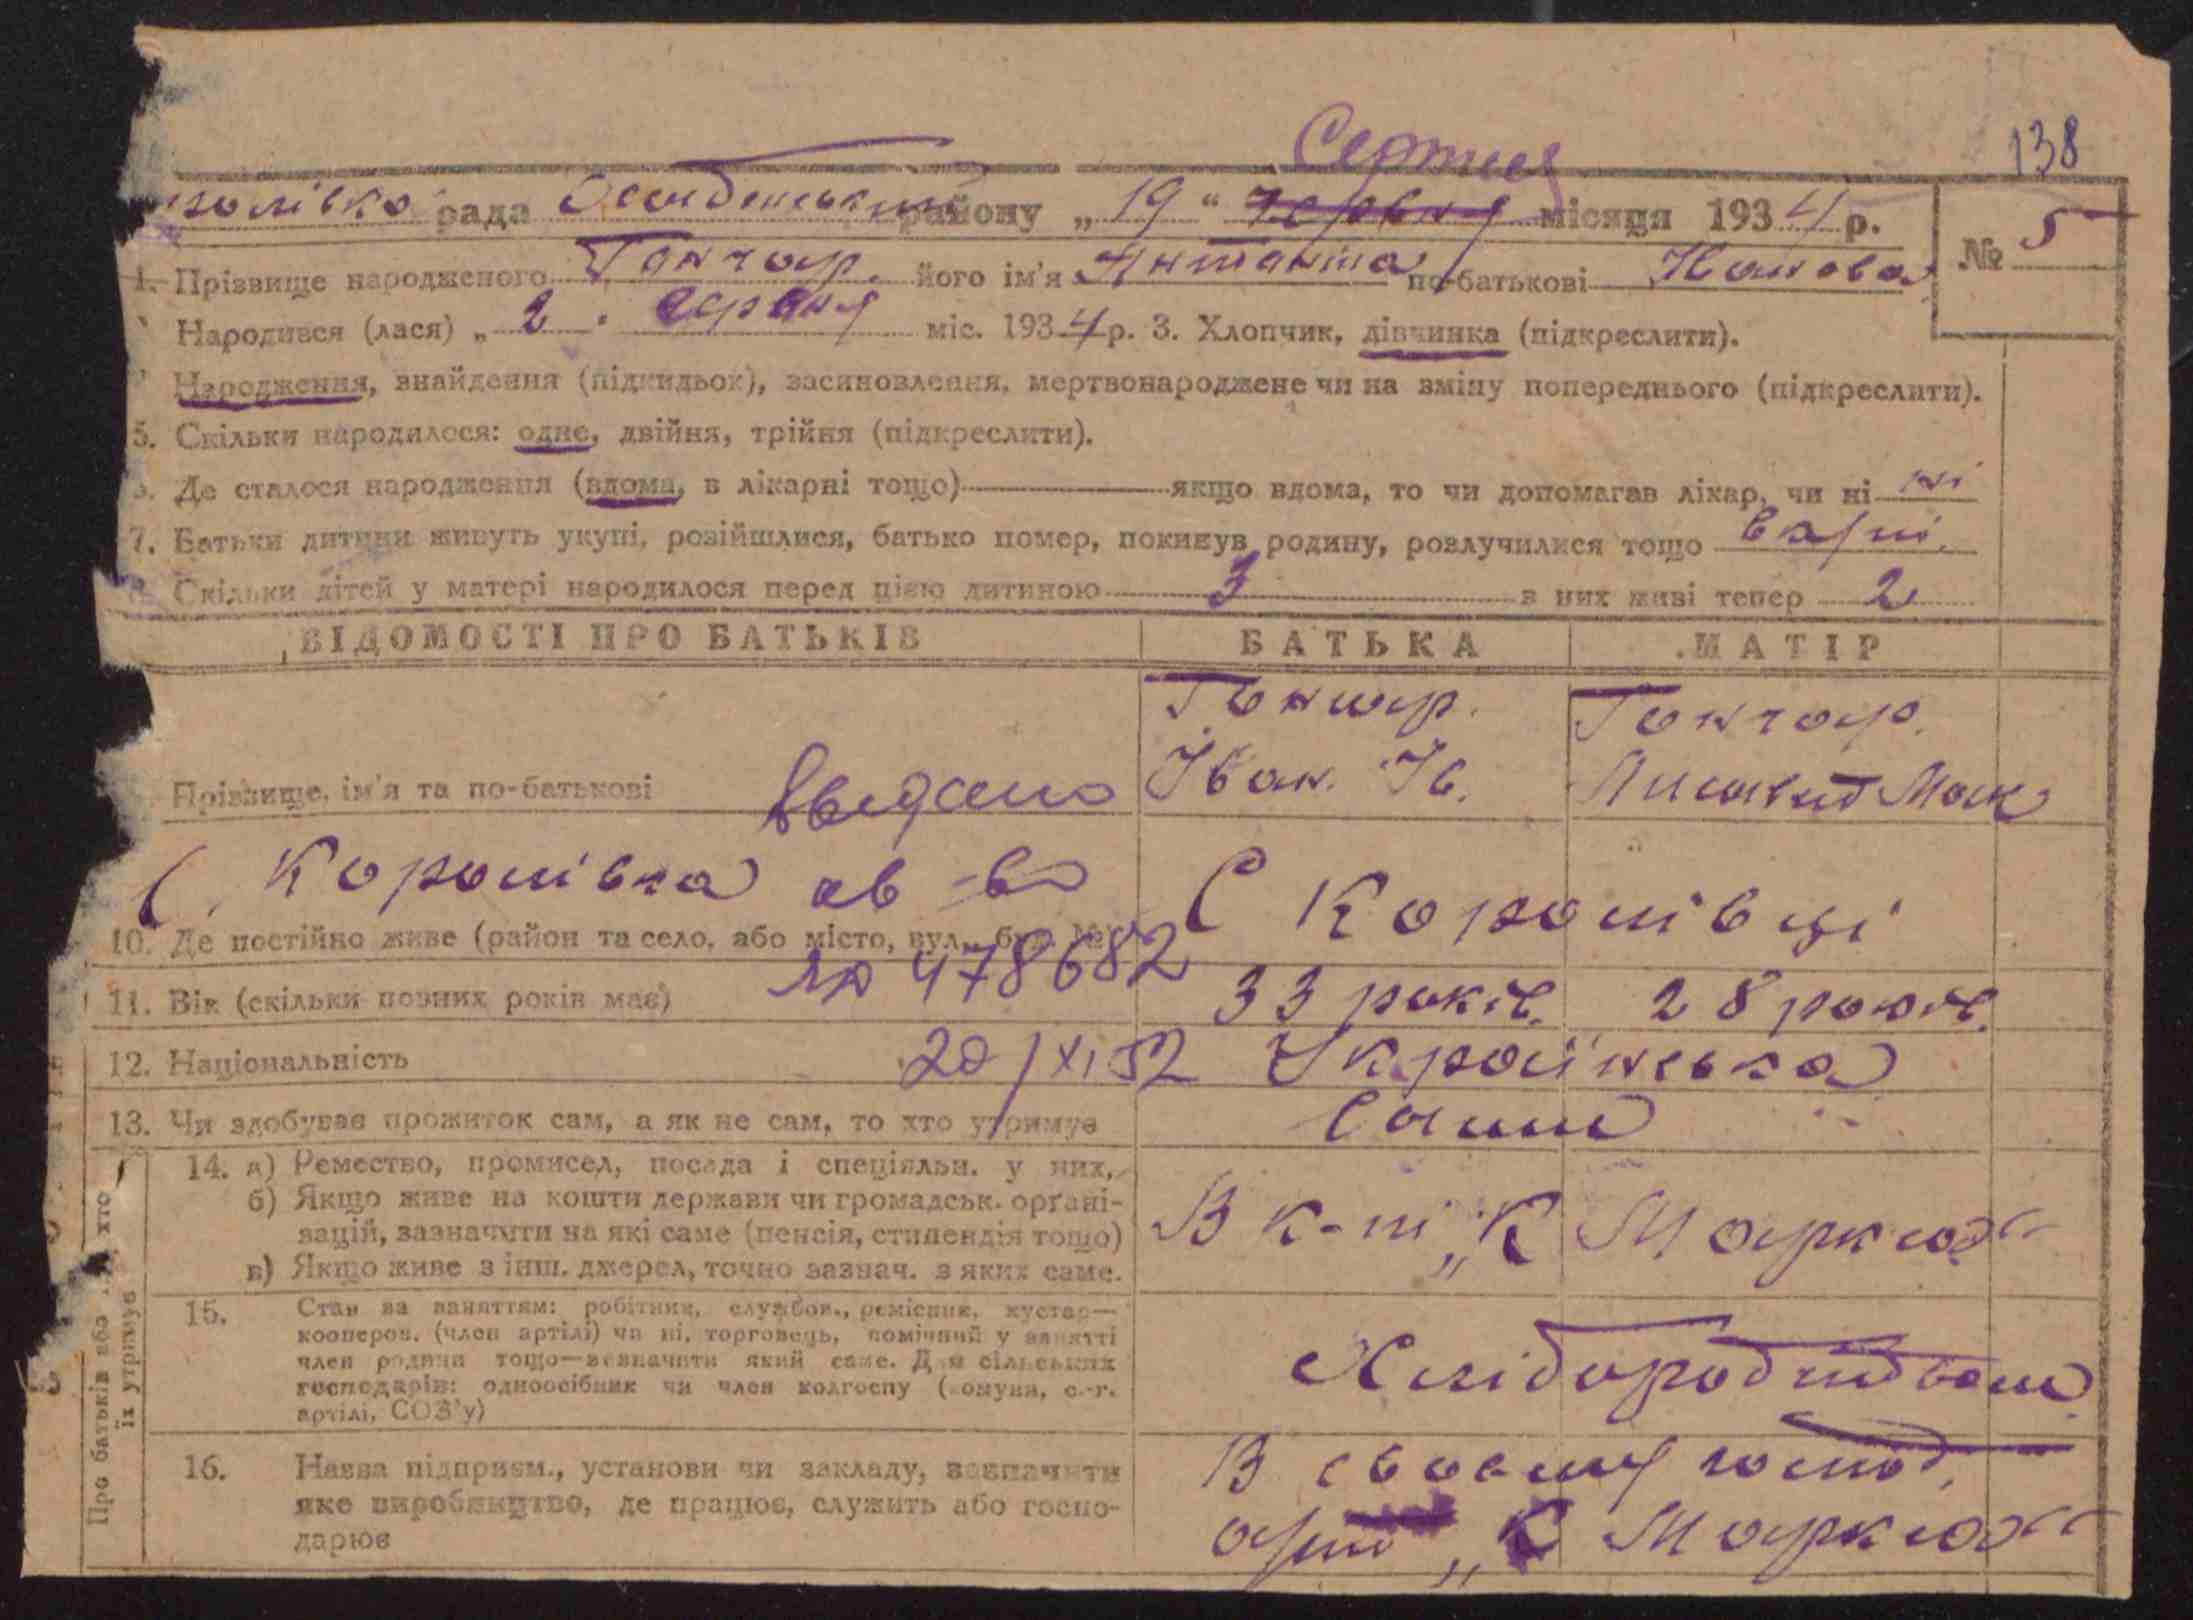 138
Серпня
рада района „ 19 “ червня місяця 1934 р. № 5
1. Прізвище народженого Гончар. його ім'я Антоніна по-батькові Іванова
Народився (лася) „ 2 “ серпня міс. 1934 р. 3. Хлопчик, дівчинка (підкреслити).
Народження, знайдення (підкидьок), засиновлення, мертвонароджене чи на зміну попереднього (підкреслити).
5. Скільки народилося: одне, двійня, трійня (підкреслити).
Де сталося народження (вдома, в лікарні тощо) якщо вдома, то чи допомагав лікар, чи ні ні
7. Батьки дитини живуть укупі, розійшлися, батько помер, покинув родину, розлучилися тощо
Скільки дітей у матері народилося перед цією дитиною 3 з них живі тепер 2
ВІДОМОСТІ ПРО БАТЬКІВ БАТЬКА МАТІР
Гончар. Гончар.
Прізвище, ім'я та по-батькові Іван. Ів. Мак
С Королівка ав-во С Королівці
10. Де постійно живе (район та село, або місто, вул., буд. №
478682
11. Вік (скільки повних років має) 33 років. 28 років.
12. Національність 20/XI 52 Українська
13. Чи здобуває прожиток сам, а як не сам, то хто утримує Сами
Про батьків або хто їх утримує
14. а) Ремество, промисел, посада і спеціяльн. у них,
б) Якщо живе на кошти держави чи громадськ. органі-
зацій, зазначити на які саме (пенсія, стипендія тощо) В к-пі „К Маркса“
в) Якщо живе з інш. джерел, точно зазнач. з яких саме.
15. Стан за заняттям: робітник, службов., ремісник, кустар—
коопероз. (член артілі) чи ні, торговець, помічний у занятті
член родини тощо—зазначити який саме. Для сільських
господарів: одноосібник чи член колгоспу (комуни, с.-г.
артілі, СОЗ'у)
16. Назва підприєм., установи чи закладу, зазначити В своєму господ.
яке виробництво, де працює, служить або госпо-
дарює „К Маркса“